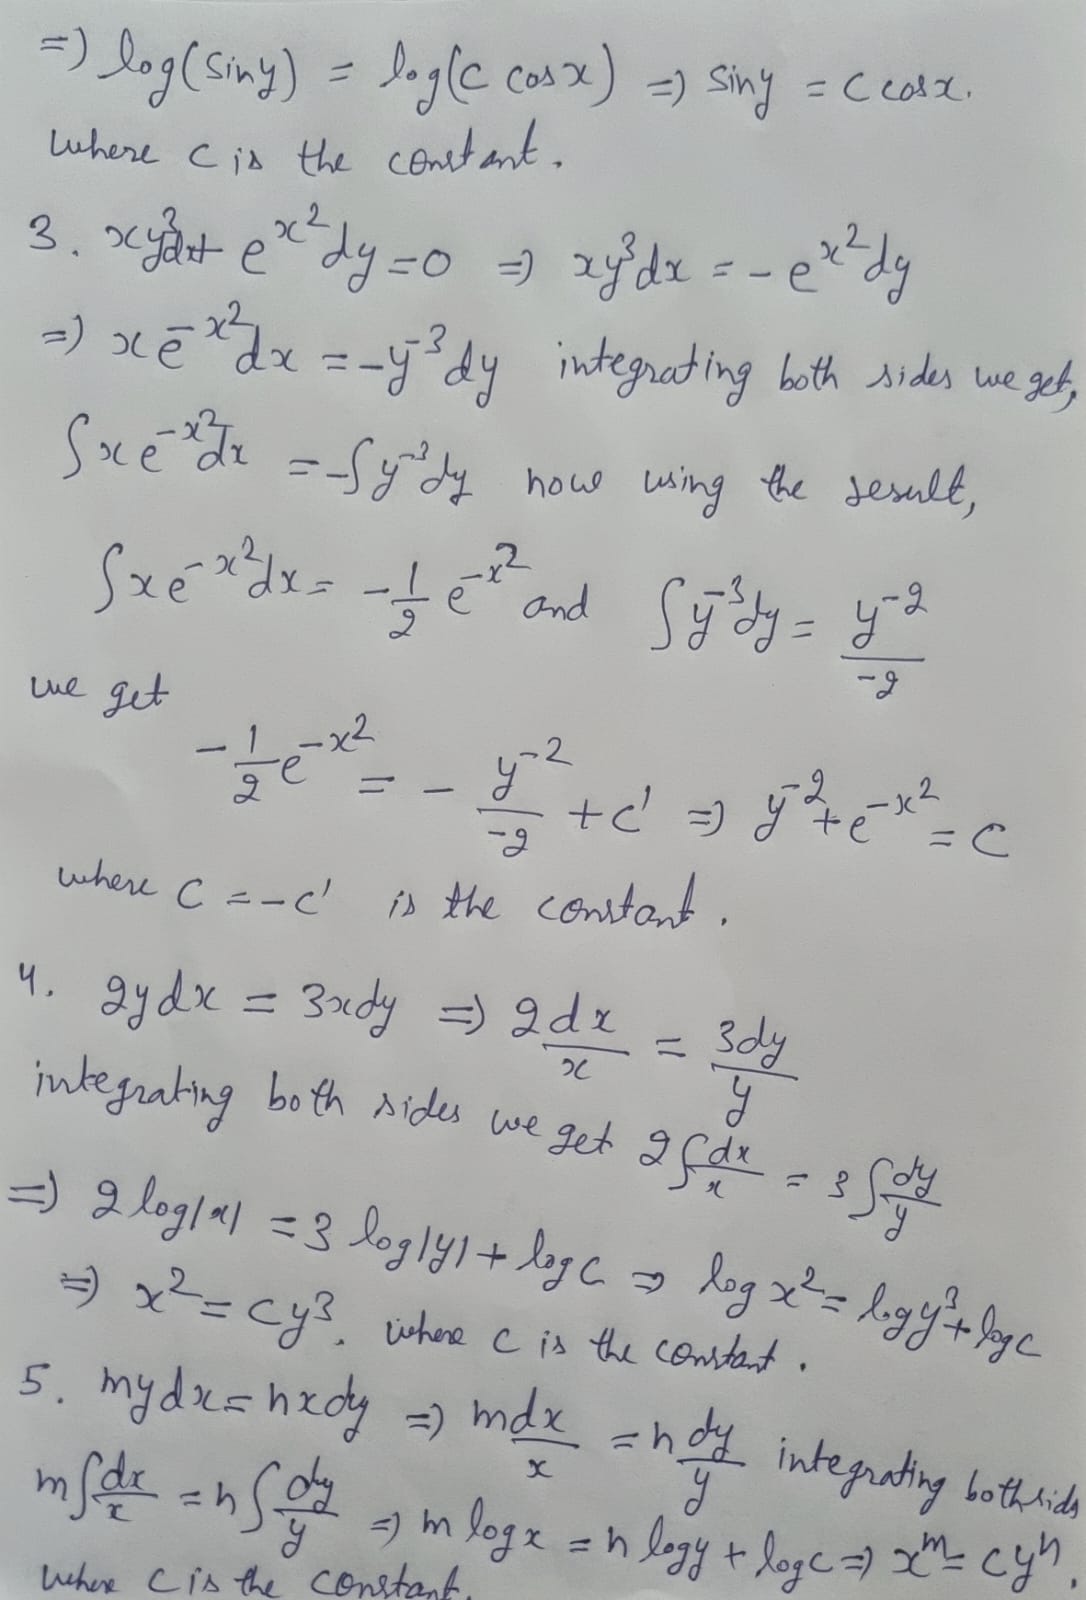 =) log(siny) = log(c cosx) =) siny = c cosx.
where c is the constant.
3. xy³dx + e^x² dy = 0 =) xy³dx = - e^x² dy
=) x e^-x² dx = -y^-3 dy integrating both sides we get,
∫x e^-x² dx = -∫y^-3 dy now using the result,
∫x e^-x² dx = -1/2 e^-x² and ∫y^-3 dy = y^-2/-2
we get
-1/2 e^-x² = - y^-2/-2 + c' =) y^-2 + e^-x² = c
where c = -c' is the constant.
4. 2y dx = 3x dy =) 2dx/x = 3dy/y
integrating both sides we get 2∫dx/x = 3∫dy/y
=) 2 log|x| = 3 log|y| + log c => log x² = log y³ + log c
=) x² = cy³. where c is the constant.
5. my dx = nx dy =) m dx/x = n dy/y integrating both sids
m∫dx/x = n∫dy/y =) m log x = n logy + log c =) x^m = c y^n.
where c is the constant.